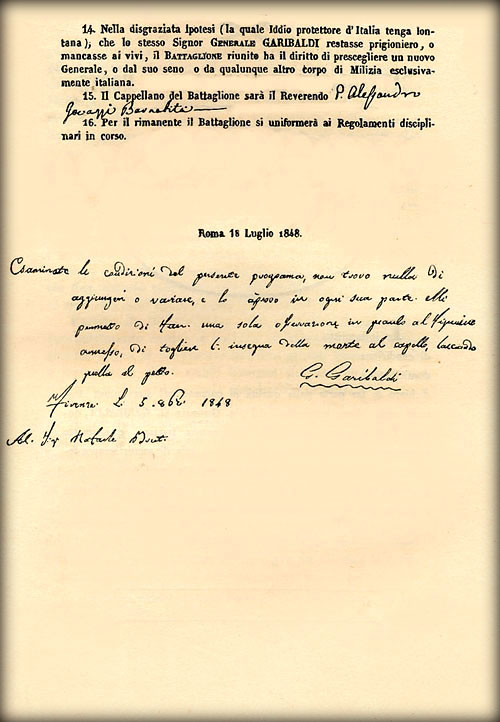 14. Nella disgraziata ipotesi (la quale Iddio protettore d'Italia tenga lon-
tana); che lo stesso Signor GENERALE GARIBALDI restasse prigioniero, o
mancasse ai vivi, il BATTAGLIONE riunito ha il diritto di prescegliere un nuovo
Generale, o dal suo seno o da qualunque altro corpo di Milizia esclusiva-
mente italiana.
15. Il Cappellano del Battaglione sarà il Reverendo P. Alessandro
Gavazzi Barnabita
16. Per il rimanente il Battaglione si uniformerà ai Regolamenti discipli-
nari in corso.
Roma 18 Luglio 1848.
Esaminate le condizioni del presente programa, non trovo nulla di
aggiungere o variare, e lo aprovo in ogni sua parte. Mi
permetto di una sola osservazione in quanto al Figurino
annesso, di togliere l'insegna della morte al capello, lasciando
quella al petto.
G. Garibaldi
Firenze 1848
Al Raffaele